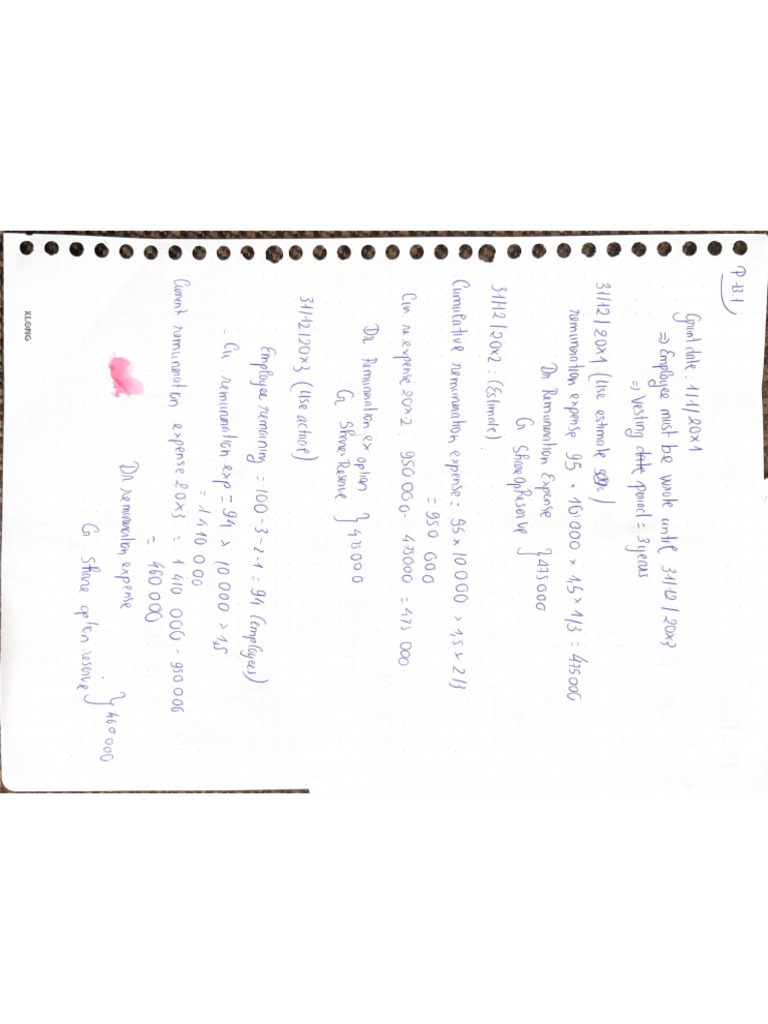 P 13.1
Grant date : 1/1/20x1
=> Employee must be wrote until 31/12/20x3
=> Vesting date period = 3 years
31/12/20x1 (Use estimate
remuneration expense 95 x 10 000 x 1,5 x 1/3 = 475 000
Dr Remuneration Expense
Cr Share Op Reserve } 475 000
31/12/20x2 : (Estimate).
Cumulative remuneration expense = 95 x 10 000 x 1,5 x 2/3
= 950 000
Cu re.expense 20x2 : 950 000 - 475000 = 475 000
Dr Remuneration ex option
Cr Share Reserve } 475000
31/12/20x3 (Use actual)
Employee remaining = 100 - 3 - 2 - 1 = 94 (employees)
- Cu remuneration exp = 94 x 10 000 x 1,5
= 1 410 000
Current remuneration expense 20x3 = 1 410 000 - 950 000
= 460 000
Dr remuneration expense
Cr share option reserve } 460 000
KLONG